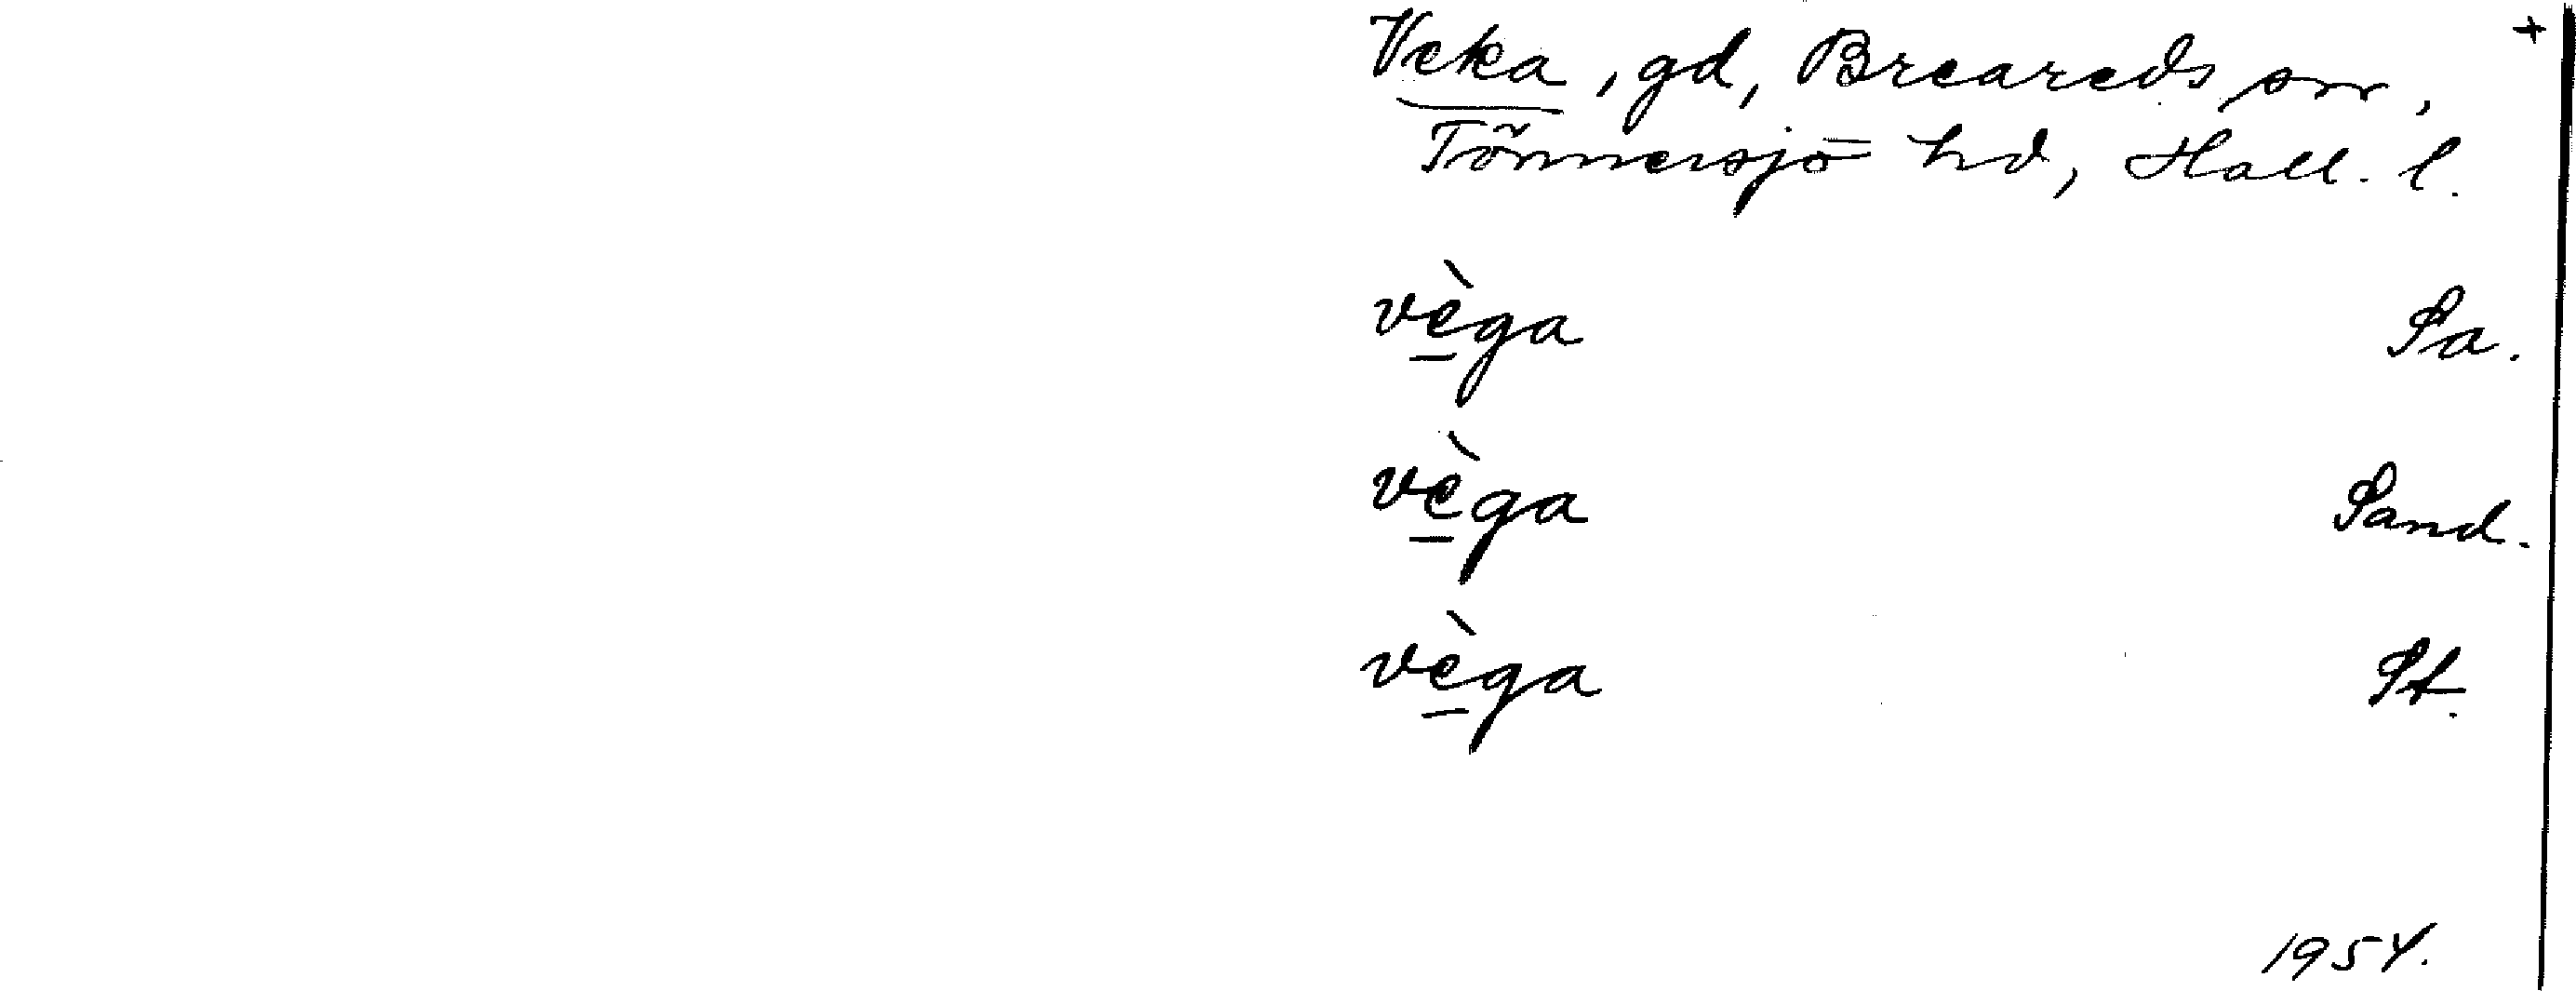 Veka, gd, Breareds sn, +
Tönnersjö hd, Hall. l.
vèga Sa.
vèga Sand.
vèga St.
1954.